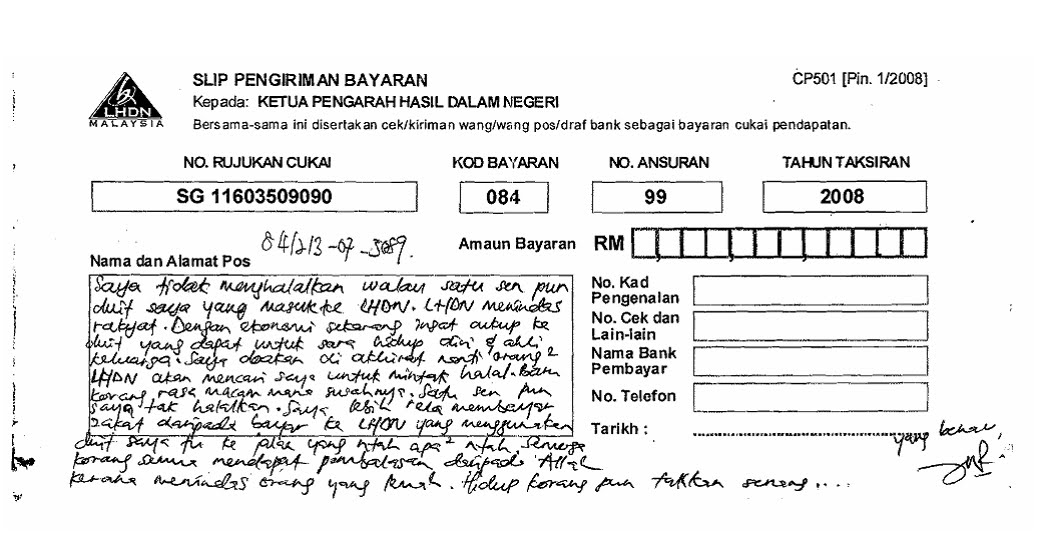 LHDN
MALAYSIA
SLIP PENGIRIMAN BAYARAN
CP501 [Pin. 1/2008]
Kepada: KETUA PENGARAH HASIL DALAM NEGERI
Bersama-sama ini disertakan cek/kiriman wang/wang pos/draf bank sebagai bayaran cukai pendapatan.
NO. RUJUKAN CUKAI KOD BAYARAN NO. ANSURAN TAHUN TAKSIRAN
SG 11603509090 084 99 2008
84/213-07-3089.
Amaun Bayaran RM
Nama dan Alamat Pos
Saya tidak menghalalkan walau satu sen pun
duit saya yang masuk ke LHDN. LHDN menindas
rakyat. Dengan ekonomi sekarang ingat cukup ke
duit yang dapat untuk sara hidup diri & ahli
keluarga. Saya doakan di akhirat nanti orang2
LHDN akan mencari saya untuk mintak halal. Baru
korang rasa macam mana susahnya. Satu sen pun
saya tak halalkan. Saya lebih rela membayar
zakat daripada bayar ke LHDN yang menggunakan
duit saya tu ke jalan yang ntah apa2 ntah. Semoga
korang semua mendapat pembalasan daripada Allah
kerana menindas orang yang lemah. Hidup korang pun takkan senang....
No. Kad
Pengenalan
No. Cek dan
Lain-lain
Nama Bank
Pembayar
No. Telefon
Tarikh :
yang benar,